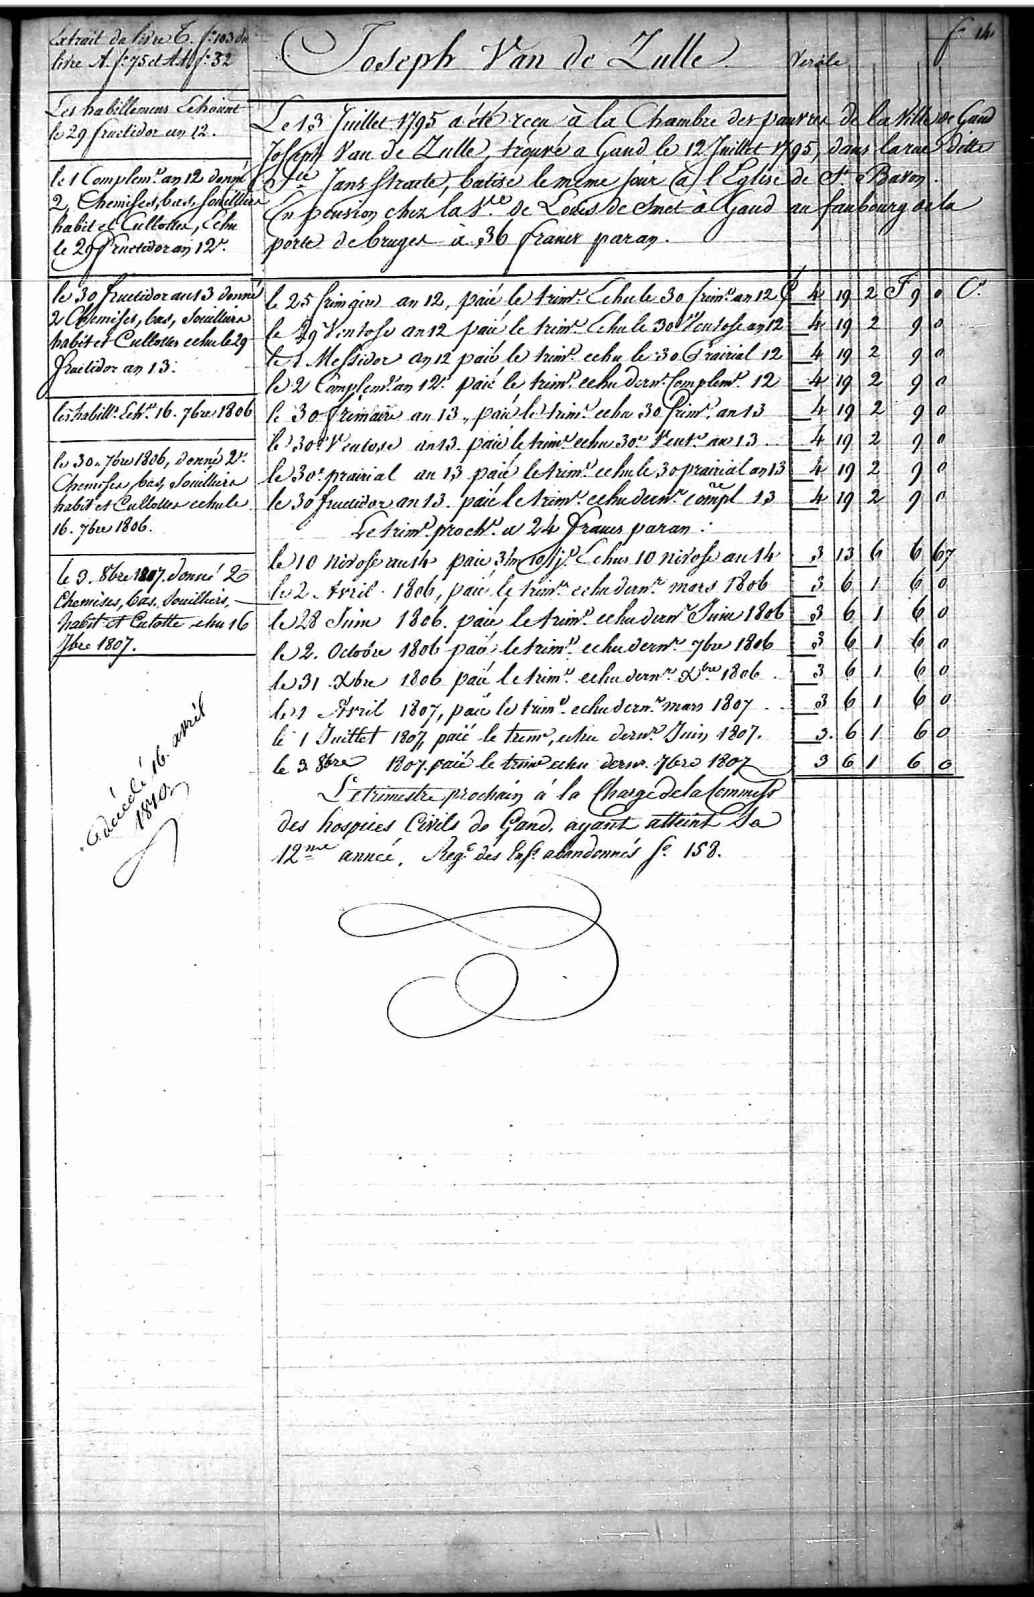 Extrait du livre C. f.º 103 du
livre A. f.º 75 et A.10 f.º 32
Joseph Van de Zulle.
Verole
f.º 14
Les habillemens Echoient
le 29 fructidor an 12.
le 1 Complem.re an 12 donné
2 Chemises, bas, souilliers
habit et Cullottes, Echu
le 29 fructidor an 12.e
le 30 fructidor an 13 donné
2 Chemises, bas, souilliers
habit et Cullottes echu le 29
fructidor an 13.
les habill.s Ech.t 16. 7bre 1806
le 30. 7bre 1806, donné 2.
Chemises, bas, souilliers
habit et Cullottes echu le
16. 7bre 1806.
le 3. 8bre 1807. donné 2
Chemises, bas, souilliers,
habit et Culotte echu 16
7bre 1807.
décédé 16. avril
1810
Le 13 Juillet 1795 a été recu à la Chambre des pauvres de la Ville de Gand
Joseph Van de Zulle, trouvé a Gand le 12 Juillet 1795, dans la rue ditte
Jans straete, batisé le meme jour (a) l'Eglise de St. Bavon.
En pension chez la V.ve de Louis de Smet à Gand au faubourg de la
porte de bruges à 36 francs par an.
le 25 frim an 12, paié le trim.e Echu le 30 frim.e an 12 £ 4 19 2 F 9 0 C.s
le 29 Ventose an 12 paié le trim.e Echu le 30 Ventose an 12 4 19 2 9 0
le 1 Messidor an 12 paié le trim.e echu le 30 Prairial 12 4 19 2 9 0
le 2 Complem.re an 12.e paié le trim.e echu dern.r Complem.re 12 4 19 2 9 0
le 30 frimaire an 13, paié le trim.e echu 30 frim.e an 13 4 19 2 9 0
le 30.e Ventose an 13. paié le trim.e echu 30.e Vent.e an 13 4 19 2 9 0
le 30.e prairial an 13 paié le trim.e echu le 30 prairial an 13 4 19 2 9 0
le 30 fructidor an 13. paié le trim.e echu dern.r compl 13 4 19 2 9 0
Le trim.e proch.n a 24 francs par an :
le 10 nivose an 14 paié 3 m 10 j.s Echus 10 nivose an 14 3 13 6 6 67
le 2 Avril 1806, paié le trim.e echu dern.r mars 1806 3 6 1 6 0
le 28 Juin 1806. paié le trim.e echu dern.r Juin 1806 3 6 1 6 0
le 2. Octobre 1806 paié le trim.e echu dern.r 7bre 1806 3 6 1 6 0
le 31 Xbre 1806 paié le trim.e echu dern.r Xbre 1806 3 6 1 6 0
le 1 Avril 1807, paié le trim.e echu dern.r mars 1807 3 6 1 6 0
le 1 Juillet 1807, paié le trim.e echu dern.r Juin 1807. 3. 6 1 6 0
le 3 8bre 1807. paié le trim.e echu dern.r 7bre 1807 3 6 1 6 0
Le trimestre prochain à la Charge de la Commiss.n
des hospices Civils de Gand, ayant atteint sa
12.me année, Reg.e des Enf.s abandonnés f.º 158.